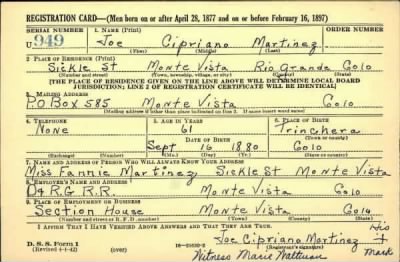 REGISTRATION CARD—(Men born on or after April 28, 1877 and on or before February 16, 1897)
SERIAL NUMBER 1. NAME (Print) ORDER NUMBER
U 949 Joe Cipriano Martinez
(First) (Middle) (Last)
2. PLACE OF RESIDENCE (Print)
Sickle St Monte Vista Rio Grande Colo
(Number and street) (Town, township, village, or city) (County) (State)
[THE PLACE OF RESIDENCE GIVEN ON THE LINE ABOVE WILL DETERMINE LOCAL BOARD
JURISDICTION; LINE 2 OF REGISTRATION CERTIFICATE WILL BE IDENTICAL]
3. MAILING ADDRESS
P.O Box 585 Monte Vista Colo
[Mailing address if other than place indicated on line 2. If same insert word same]
4. TELEPHONE 5. AGE IN YEARS 6. PLACE OF BIRTH
None 61 Trinchera
DATE OF BIRTH (Town or county)
Sept 16 1880 Colo
(Exchange) (Number) (Mo.) (Day) (Yr.) (State or country)
7. NAME AND ADDRESS OF PERSON WHO WILL ALWAYS KNOW YOUR ADDRESS
Miss Fannie Martinez Sickle St Monte Vista
8. EMPLOYER'S NAME AND ADDRESS
D&RG. R.R. Monte Vista Colo
9. PLACE OF EMPLOYMENT OR BUSINESS
Section House Monte Vista Colo
(Number and street or R. F. D. number) (Town) (County) (State)
I AFFIRM THAT I HAVE VERIFIED ABOVE ANSWERS AND THAT THEY ARE TRUE.
His
D. S. S. Form 1 Joe Cipriano Martinez X
(Revised 4-1-42) (over) Mark
Witness Marie